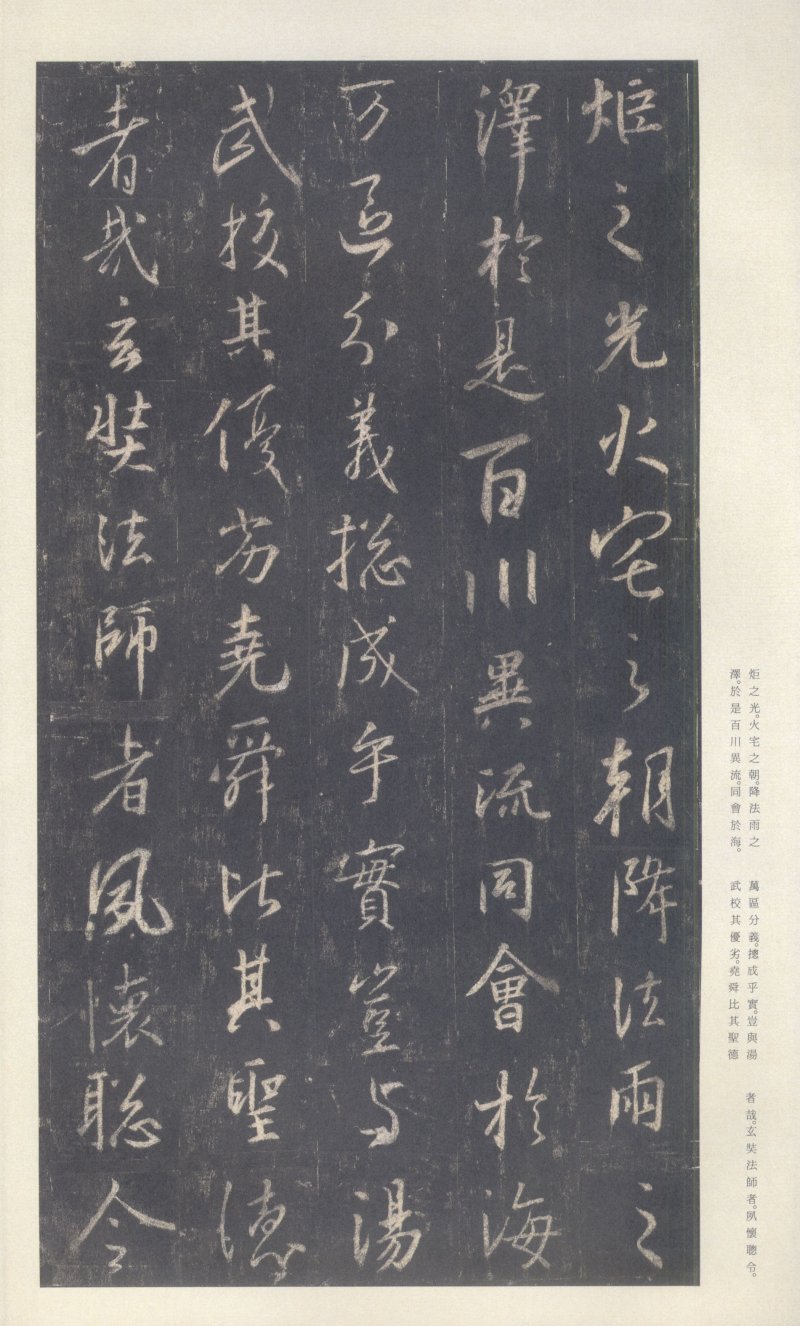 炬之光火宅之朝降法雨之
澤於是百川異流同會於海
万區分義捴成乎實豈与湯
武挍其優劣堯舜比其聖德
者哉玄奘法師者夙懷聡令
炬之光。火宅之朝。降法雨之
澤。於是百川異流。同會於海。
萬區分義。摠成乎實。豈與湯
武校其優劣。堯舜比其聖德
者哉。玄奘法師者。夙懷聰令。